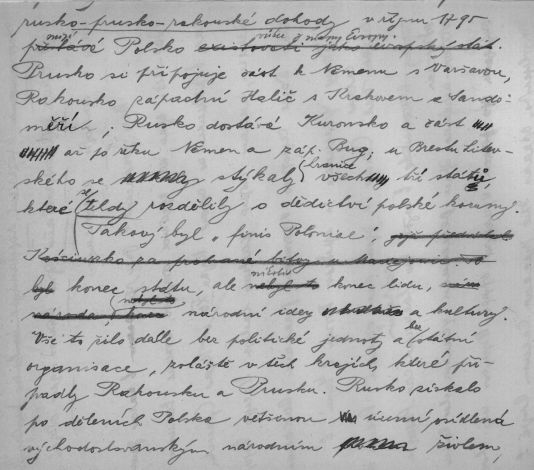 rusko-prusko-rakouské dohody v říjnu 1795
mizí Polsko vůbec z mapy Evropy.
přestává existovati jako evropský stát.
Prusko si připojuje část k Němenu s Varšavou,
Rakousko západní Halič s Krakovem a Sando-
měří; Rusko dostává Kuronsko a část
až po řeku Němen a záp. Bug; u Brestu Litev-
ského se stýkaly hranice všech tří států,
které se tedy rozdělily o dědictví polské koruny.
Takový byl "finis Poloniae",
Kościuszko za prohrané bitvy u Maciejowic.
byl konec státu, ale nikoliv konec lidu,
národa, nebyl to konec národní idey a kultury.
Vše to žilo dále bez politické jednoty a bez státní
organisace, zvláště v těch krajích, které při-
padly Rakousku a Prusku. Rusko získalo
po děleních Polska většinou území osídlená
východoslovanským národním živlem,